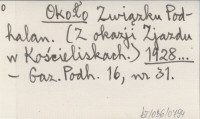 Około Związku Pod-
halan. (Z okazji Zjazdu
w Kościeliskach.) 1928...
– Gaz. Podh. 16, nr 31.